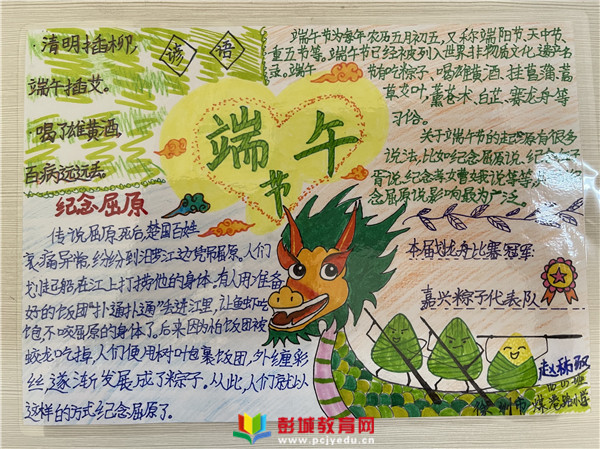 ·清明插柳,
端午插艾。
·喝了雄黄酒,
百病远远丢
谚语
端午节
端午节为每年农历五月初五,又称端阳节、天中节、
重五节等。端午节已经被列入世界非物质文化遗产名
录。端午节有吃粽子、喝雄黄酒、挂菖蒲、蒿
草、艾叶、薰苍术、白芷、赛龙舟等
习俗。
关于端午节的起源有很多
说法,比如纪念屈原说、纪念伍子
胥说、纪念孝女曹娥说等等
念屈原说影响最为广泛。
纪念屈原
传说屈原死后,楚国百姓
哀痛异常,纷纷到汨罗江边凭吊屈原。人们
划着船在江上打捞他的身体。有人用准备
好的饭团“扑通扑通”丢进江里,让鱼虾吃
饱不咬屈原的身体了。后来因怕饭团被
蛟龙吃掉,人们便用树叶包裹饭团,外缠彩
丝逐渐发展成了粽子。从此,人们就以
这样的方式纪念屈原了。
本届龙舟比赛冠军:
嘉兴粽子代表队
徐州市煤港路小学
彭城教育网
www.pcjyedu.cn